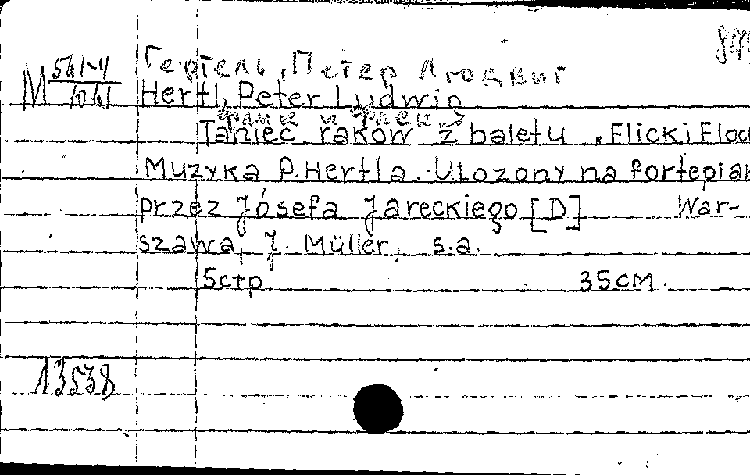 Гертель, Петер Людвиг
М 561-4/1041
Hertl, Peter Ludwig
Taniec raków z baletu „Flick i Floc
Muzyka P. Hertla. Ułożony na fortepian
przez Józefa Jareckiego [D] War-
szawa, J. Müller, s.a.
5 стр. 35 см.
13538